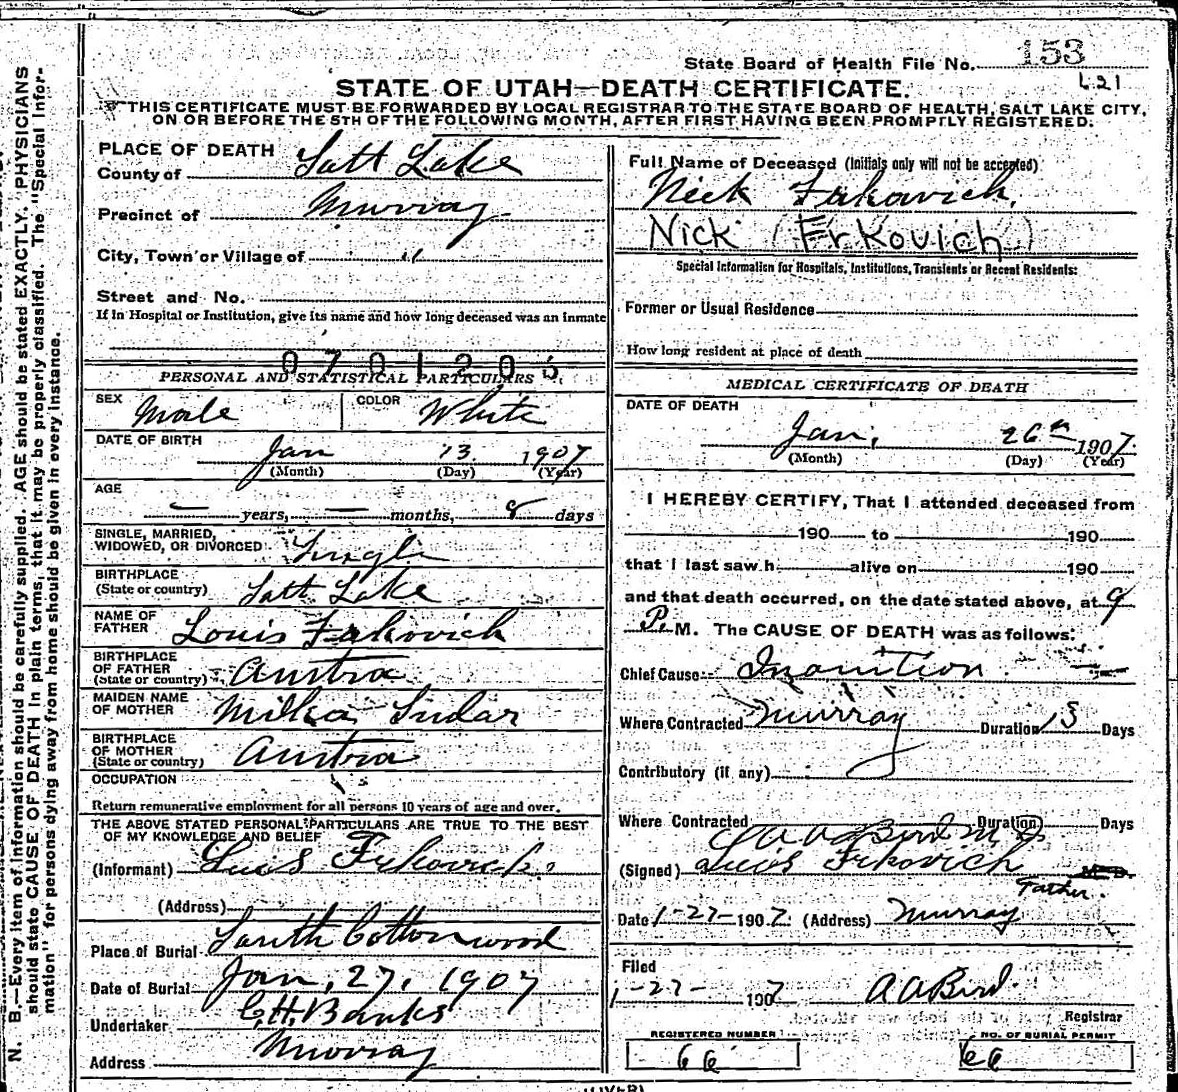 State Board of Health File No. 153
L21
STATE OF UTAH—DEATH CERTIFICATE.
THIS CERTIFICATE MUST BE FORWARDED BY LOCAL REGISTRAR TO THE STATE BOARD OF HEALTH, SALT LAKE CITY,
ON OR BEFORE THE 5TH OF THE FOLLOWING MONTH, AFTER FIRST HAVING BEEN PROMPTLY REGISTERED.
N. B.—Every item of information should be carefully supplied. AGE should be stated EXACTLY. PHYSICIANS
should state CAUSE OF DEATH in plain terms, that it may be properly classified. The "Special Infor-
mation" for persons dying away from home should be given in every instance.
PLACE OF DEATH
County of Salt Lake
Precinct of Murray
City, Town or Village of "
Street and No.
If in Hospital or Institution, give its name and how long deceased was an inmate
0701206
PERSONAL AND STATISTICAL PARTICULARS
SEX Male COLOR White
DATE OF BIRTH Jan 13 1907
(Month) (Day) (Year)
AGE
— years, — months, days
SINGLE, MARRIED,
WIDOWED, OR DIVORCED Single
BIRTHPLACE
(State or country) Salt Lake
NAME OF
FATHER Louis Frkovich
BIRTHPLACE
OF FATHER
(State or country) Austra
MAIDEN NAME
OF MOTHER Milka Sudar
BIRTHPLACE
OF MOTHER
(State or country) Austra
OCCUPATION
Return remunerative employment for all persons 10 years of age and over.
THE ABOVE STATED PERSONAL PARTICULARS ARE TRUE TO THE BEST
OF MY KNOWLEDGE AND BELIEF
(Informant) Luis Frkovich
(Address)
Place of Burial South Cottonwood
Date of Burial Jan, 27, 1907
Undertaker C.H. Banks
Address Murray
Full Name of Deceased (Initials only will not be accepted)
Nick Frkovich.
Nick (Frkovich)
Special Information for Hospitals, Institutions, Transients or Recent Residents:
Former or Usual Residence
How long resident at place of death
MEDICAL CERTIFICATE OF DEATH
DATE OF DEATH
Jan. 26th 1907.
(Month) (Day) (Year)
I HEREBY CERTIFY, That I attended deceased from
190 to 190
that I last saw h alive on 190
and that death occurred, on the date stated above, at 9
P. M. The CAUSE OF DEATH was as follows:
Chief Cause Inanition
Where Contracted Murray Duration 13 Days
Contributory (if any)
Where Contracted Duration Days
A A Bird M D
(Signed) Luis Frkovich M. D.
Father.
Date 1-27-1907. (Address) Murray
Filed
1-27- 1907 A A Bird.
Registrar
REGISTERED NUMBER NO. OF BURIAL PERMIT
66 66
(OVER)